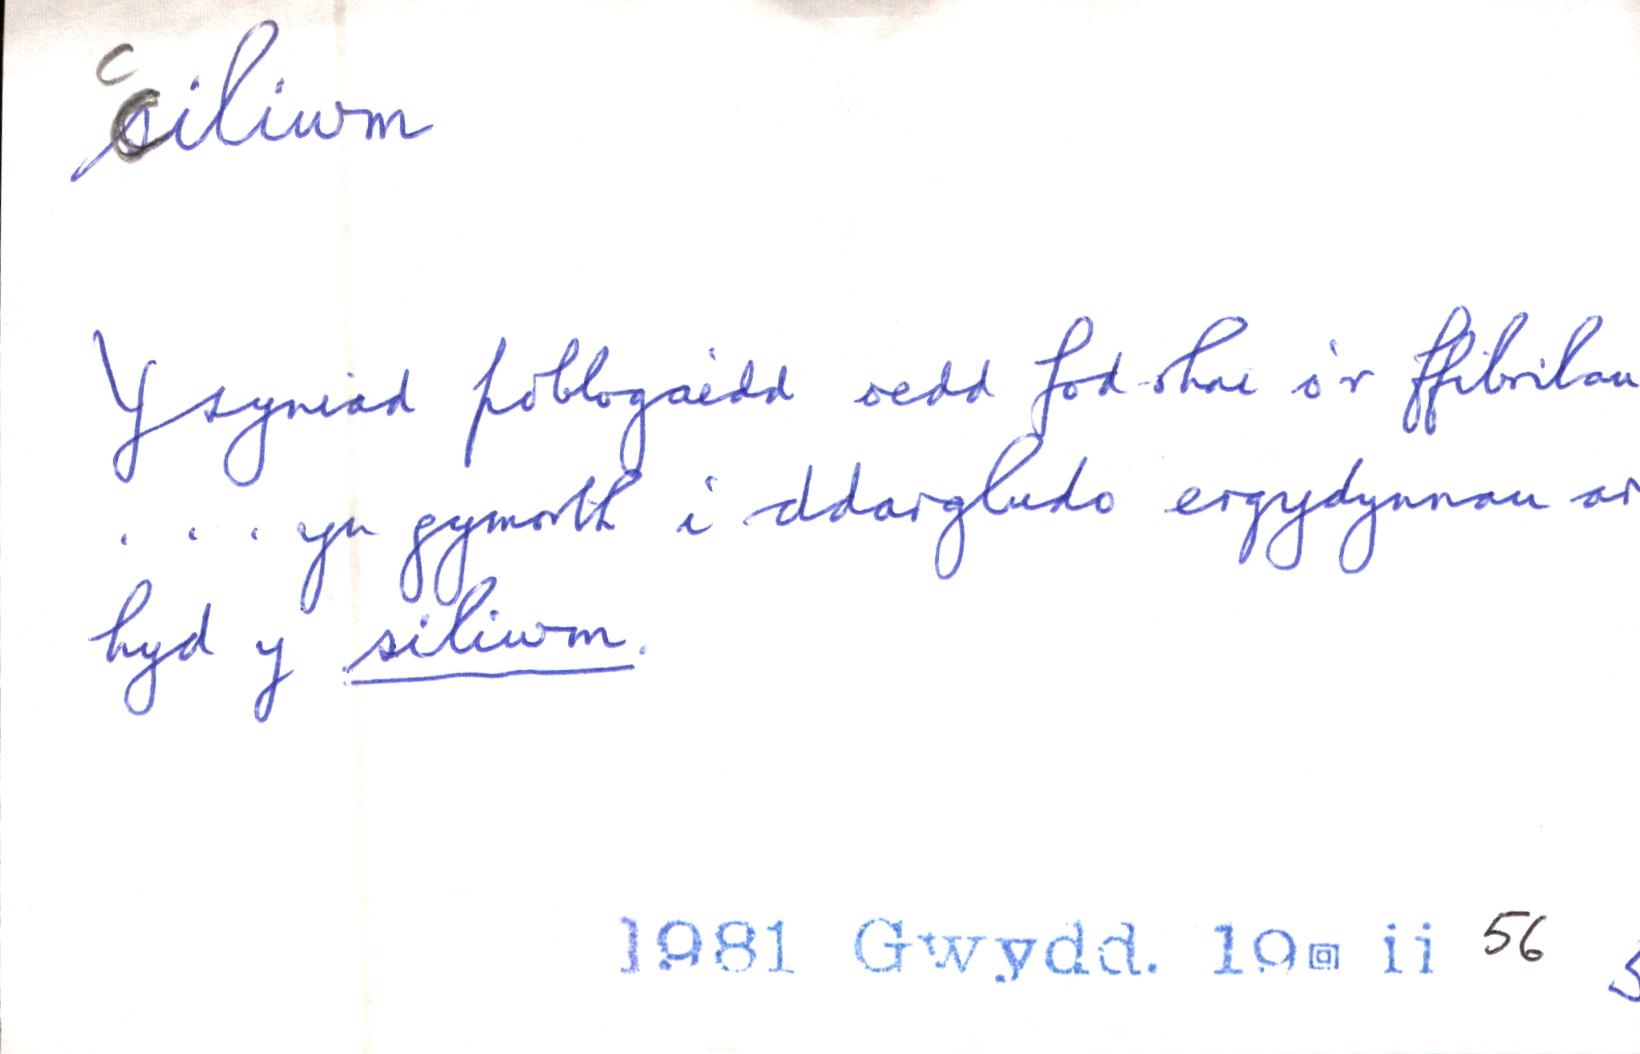 c
siliwm
Y syniad poblogaidd oedd fod rhai o'r ffibrilau
. . . yn gymorth i ddargludo ergydynnau ar
hyd y siliwm.
1981 Gwydd. 19 ii 56